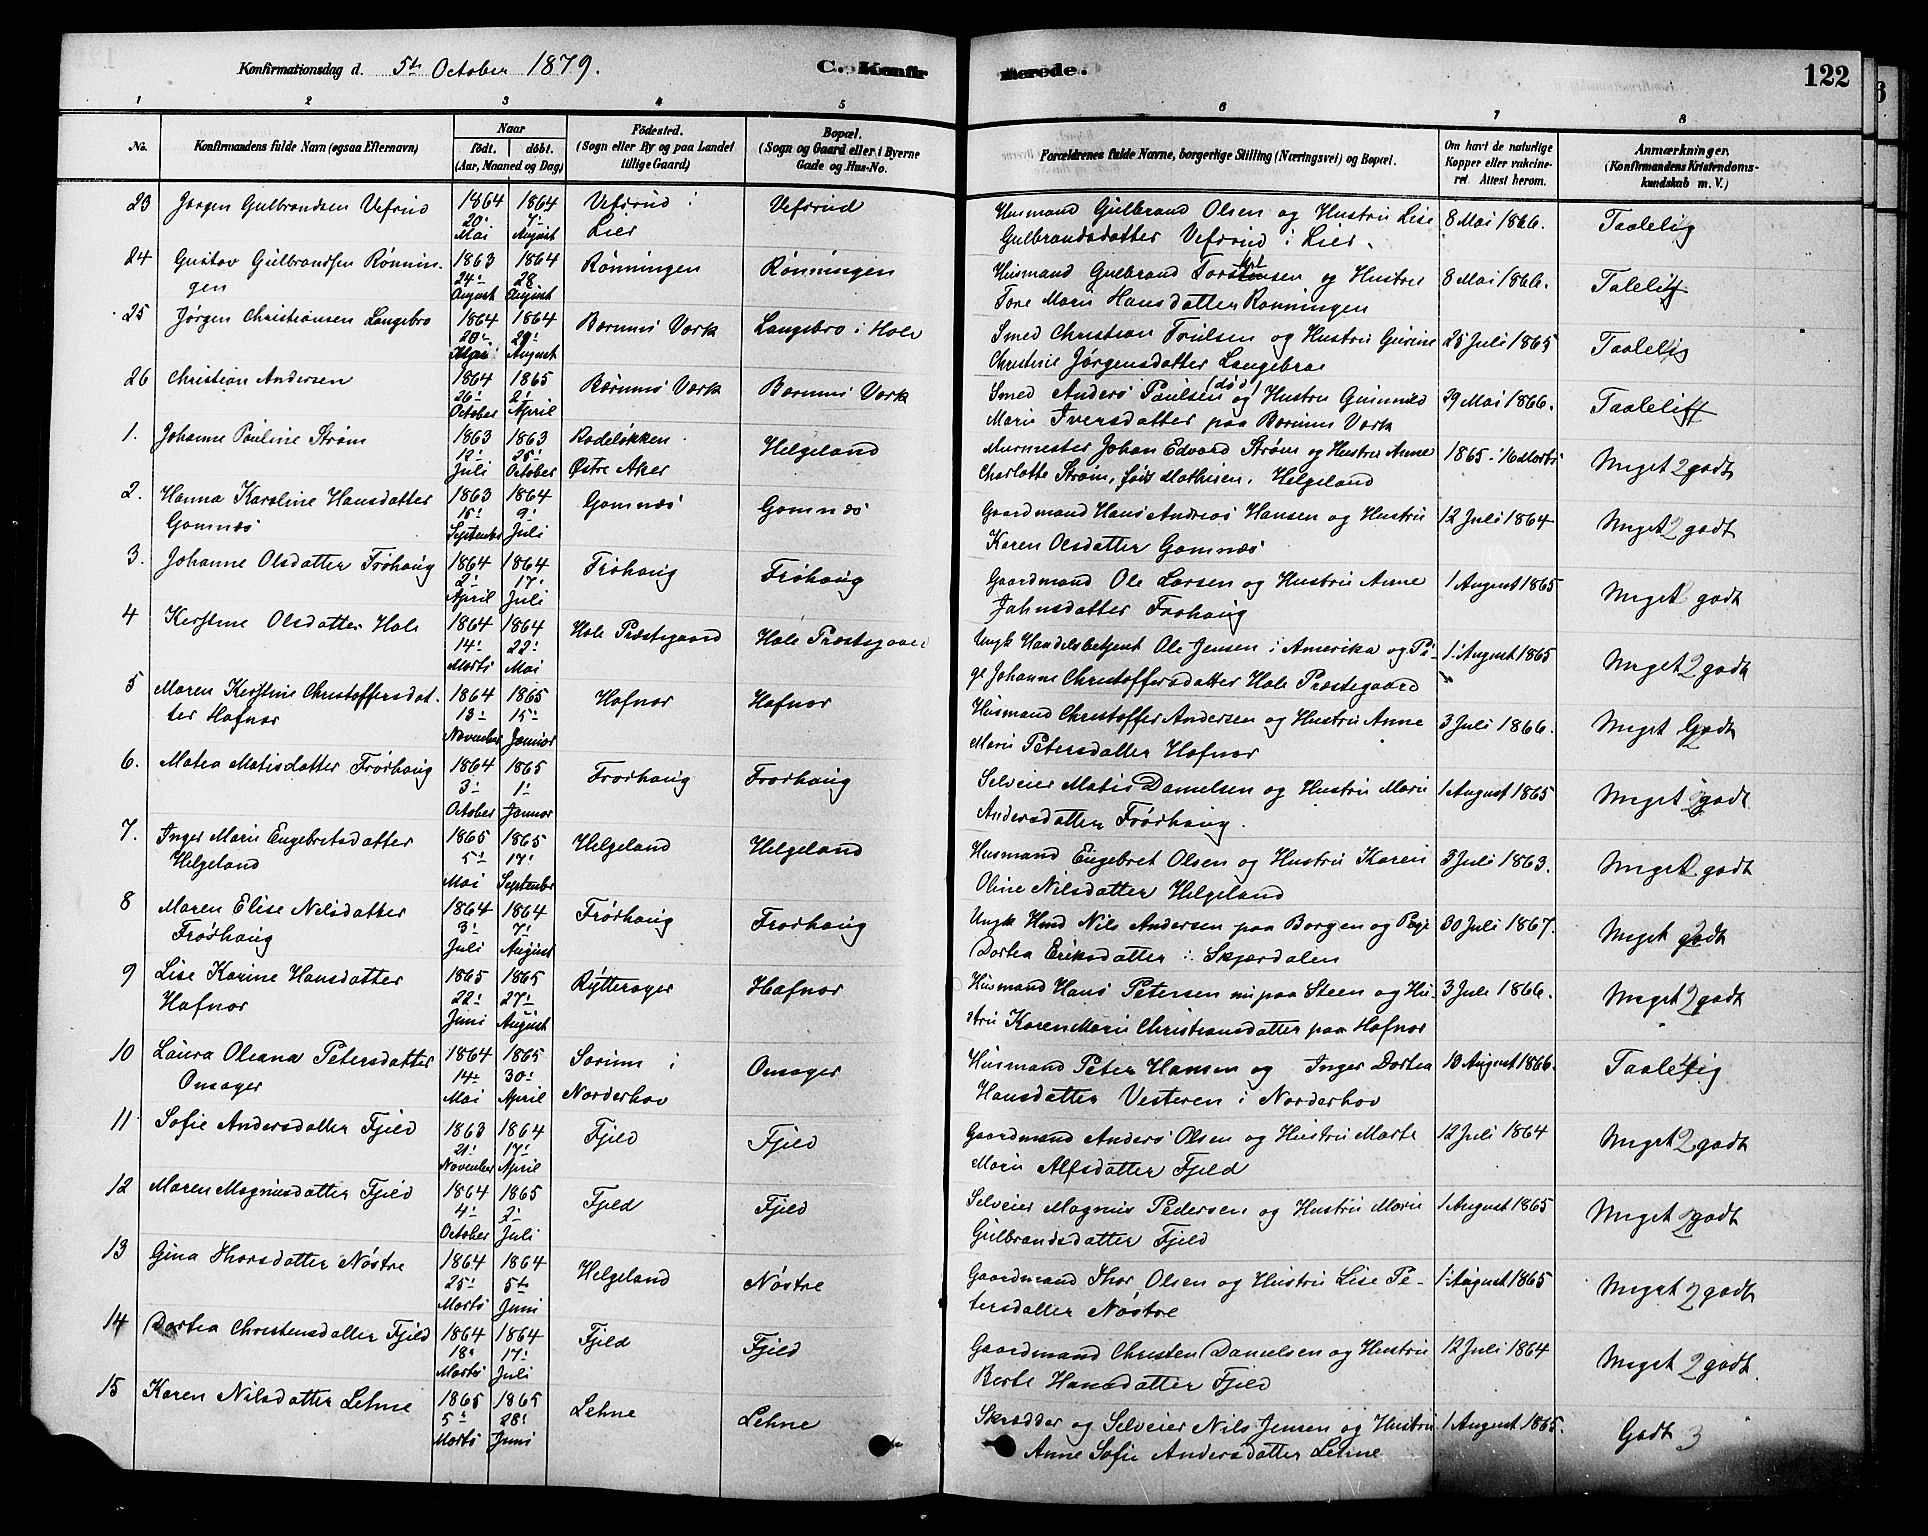 Konfirmationsdag d. 5te October 1879.
C. Konfirmerede.
122
1 2 3 4 5 6 7 8
No.
Konfirmandens fulde Navn (ogsaa Efternavn)
Naar
født. døbt.
(Aar, Maaned og Dag)
Fødested.
(Sogn eller By og paa Landet
tillige Gaard)
Bopæl.
(Sogn og Gaard eller i Byerne
Gade og Hus-No.
Forældrenes fulde Navne, borgerlige Stilling (Næringsvei) og Bopæl.
Om havt de naturlige
Kopper eller vakcine-
ret. Attest herom.
Anmærkninger,
(Konfirmandens Kristendoms-
kundskab m. V.)
23 Jørgen Gulbrandsen Vefsrud 1864 1864 Vefsrud i Vefsrud Husmand Gulbrand Olsen og Hustru Lise 8 Mai 1866. Taalelig
20: 7: Lier Gulbrandsdatter Vefsrud i Lier.
Mai August
24 Gustav Gulbrandsen Rønnin- 1863 1864 Rønningen Rønningen Husmand Gulbrand og Hustru 8 Mai 1866. Talelig
gen 24: 28 Tore Marie Hansdatter Rønningen
August August
25 Jørgen Christiansen Langebro 1864 1864 Bærums Værk Langebro i Hole Smed Christian Paulsen og Hustru Gurine 25 Juli 1865 Taalelig
20: 29: Christine Jørgensdatter Langebroe
August
26 Christian Andersen 1864 1865 Bærums Værk Bærums Værk Smed Anders Paulsen (død) og Hustru Gunnild 29 Mai 1866. Taalelig
26: 2: Marie Iversdatter paa Bærums Værk
October April
1. Johanne Pauline Strøm 1863 1863 Rodeløkken Helgeland Murmester Johan Edvard Strøm og Hustru Anne 1865. 16 Marts Meget 2 godt
12: 25: Østre Aker Charlotte Strøm, født Mathisen. Helgeland
Juli October
2. Hanna Karoline Hansdatter 1863 1864 Gomnæs Gomnæs Gaardmand Hans Andreas Hansen og Hustru 12 Juli 1864 Meget 2 godt
Gomnæs 15: 9: Karen Olsdatter Gomnæs
September Juli
3. Johanne Olsdatter Frøhaug 1864 1864 Frøhaug Frøhaug Gaardmand Ole Larsen og Hustru Anne 1 August 1865 Meget godt
2: 17: Jahnsdatter Frøhaug
April Juli
4 Kerstine Olsdatter Hole 1864 1864 Hole Præstegaard Hole Præstegaard Ungk Handelsbetjent Ole Jensen i Amerika og Pi- 1: August 1865 Meget 2 godt
14: 22: ge Johanne Christoffersdatter Hole Præstegaard
Marts Mai
5 Maren Kerstine Christoffersdat- 1864 1865 Hafnor Hafnor Husmand Christoffer Andersen og Hustru Anne 3 Juli 1866. Meget Godt
ter Hafnor 13: 15: Marie Petersdatter Hafnor
November Januar
6. Matea Matisdatter Frørhaug 1864 1865 Frørhaug Frørhaug Selveier Matis Danielsen og Hustru Marie 1 August 1865 Meget 2 godt
3: 1: Andersdatter Frørhaug.
October Januar
7. Inger Marie Engebretsdatter 1865 1865 Helgeland Helgeland Husmand Engebret Olsen og Hustru Karen 3 Juli 1863. Meget 2 godt
Helgeland 5: 17: Oline Nilsdatter Helgeland
Mai September
8 Maren Elise Nilsdatter 1864 1864 Frørhaug Frørhaug Ungk Hmd Nils Andersen paa Borgen og Pige 30 Juli 1867. Meget godt
Frørhaug 3: 7: Dortea Eriksdatter i Skjærdalen
Juli August
9 Lise Karine Hansdatter 1865 1865 Rytterager Hafnor Husmand Hans Petersen nu paa Steen og Hu- 3 Juli 1866. Meget 2 godt
Hafnor 22: 27: stru Karen Marie Christiansdatter paa Hafnor
Juni August
10 Laura Oleana Petersdatter 1864 1865 Sørum i Onsager Husmand Peter Hansen og Inger Dortea 10 August 1866. Taalelig
Onsager 14: 30: Norderhov Hansdatter Vesteren i Norderhov
Mai April
11 Sofie Andersdatter Fjeld 1863 1864 Fjeld Fjeld Gaardmand Anders Olsen og Hustru Marte 12 Juli 1864 Meget 2 godt
21: 17: Marie Alfsdatter Fjeld
November April
12 Maren Magnusdatter Fjeld 1864 1865 Fjeld Fjeld Selveier Magnus Pedersen og Hustru Marie 1 August 1865 Meget 2 godt
4: 2: Gulbrandsdatter Fjeld
October Juli
13 Gina Thorsdatter Nøstre 1864 1864 Helgeland Nøstre Gaardmand Thor Olsen og Hustru Lise Pe- 1: August 1865 Meget 2 godt
25: 5te tersdatter Nøstre
Marts Juni
14 Dortea Christensdatter Fjeld 1864 1864 Fjeld Fjeld Gaardmand Christen Danielsen og Hustru 12 Juli 1864 Meget 2 godt.
18: 17: Berte Hansdatter Fjeld
Marts Juli
15 Karen Nilsdatter Lehne 1865 1865 Lehne Lehne Skrædder og Selveier Nils Jensen og Hustru 1 August 1865. Godt 3
5: 28: Anne Sofie Andersdatter Lehne
Marts Juni